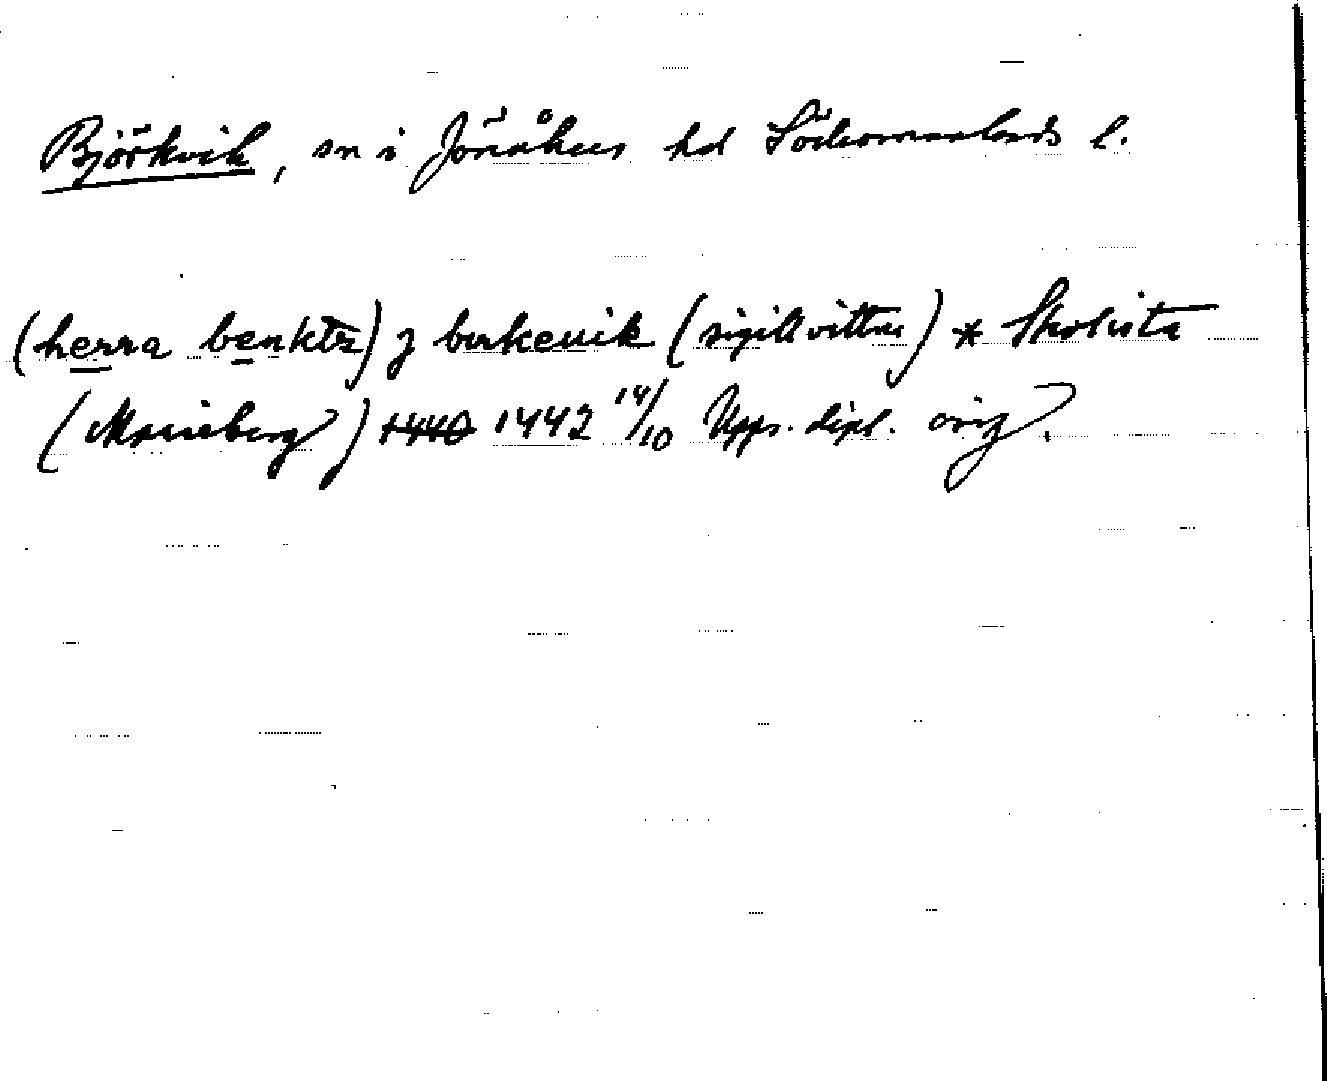 Björkvik, sn i Jönåkers hd Södermanlands l.
(herra benktz) j birkeuik (sigillvittne) * Skolista
(Marieberg) 1440 1442 14/10 Upps. dipl. orig.